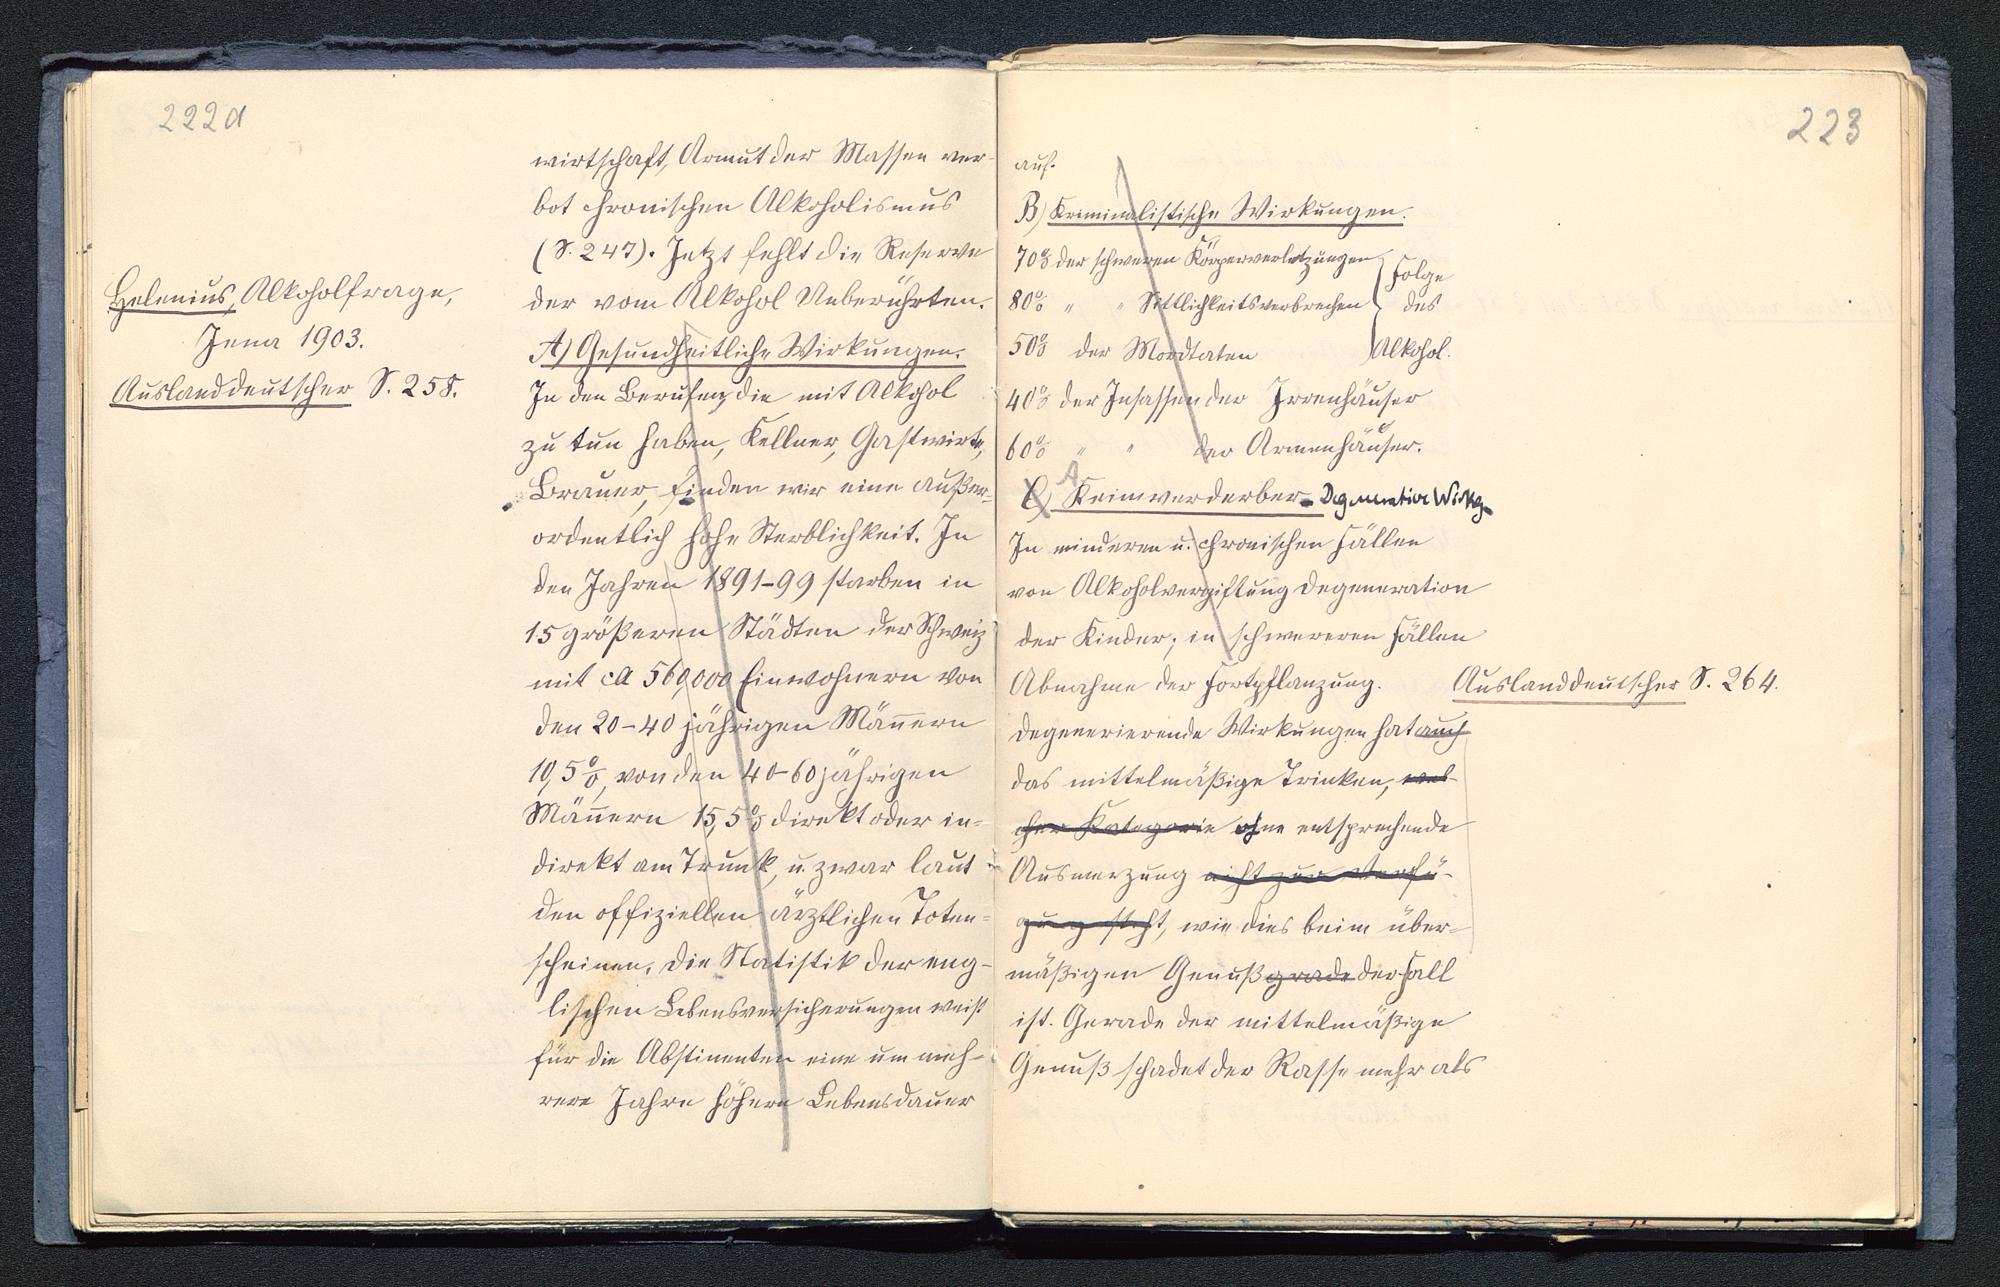 222a
wirtschaft, Armut der Massen ver-
bot chronischen Alkoholismus
(S. 247). Jetzt fehlt die Reserve
der vom Alkohol Unberührten.
Helenius, Alkoholfrage,
Jena 1903.
Auslanddeutscher S. 258.
A) Gesundheitliche Wirkungen.
In den Berufen, die mit Alkohol
zu tun haben, Kellner, Gastwirte,
Brauer, finden wir eine außer-
ordentlich hohe Sterblichkeit. In
den Jahren 1891–99 starben in
15 größeren Städten der Schweiz
mit ca 560,000 Einwohnern von
den 20–40 jährigen Männern
10,5%, von den 40–60 jährigen
Männern 15,5% direkt oder in-
direkt am Trunk, u. zwar laut
den offiziellen ärztlichen Toten-
scheinen. Die Statistik der eng-
lischen Lebensversicherungen weist
für die Abstinenten eine um meh-
rere Jahre höhere Lebensdauer
223
auf.
B) Kriminalistische Wirkungen.
70% der schweren Körperverletzungen
80% " " Sittlichkeitsverbrechen
50% der Mordtaten
Folge
des
Alkohol.
40% der Insassen der Irrenhäuser
60% " " der Armenhäuser.
A
C) Keimverderber- Degenerative Wirkg.
In minderen u. chronischen Fällen
von Alkoholvergiftung Degeneration
der Kinder; in schwereren Fällen
Abnahme der Fortpflanzung.
Auslanddeutscher S. 264.
Degenerierende Wirkungen hat auch
das mittelmäßige Trinken, wel-
cher Kategorie ohne entsprechende
Ausmerzung nicht zur Verfü-
gung steht, wie dies beim über-
mäßigen Genuß grade der Fall
ist. Gerade der mittelmäßige
Genuß schadet der Rasse mehr als